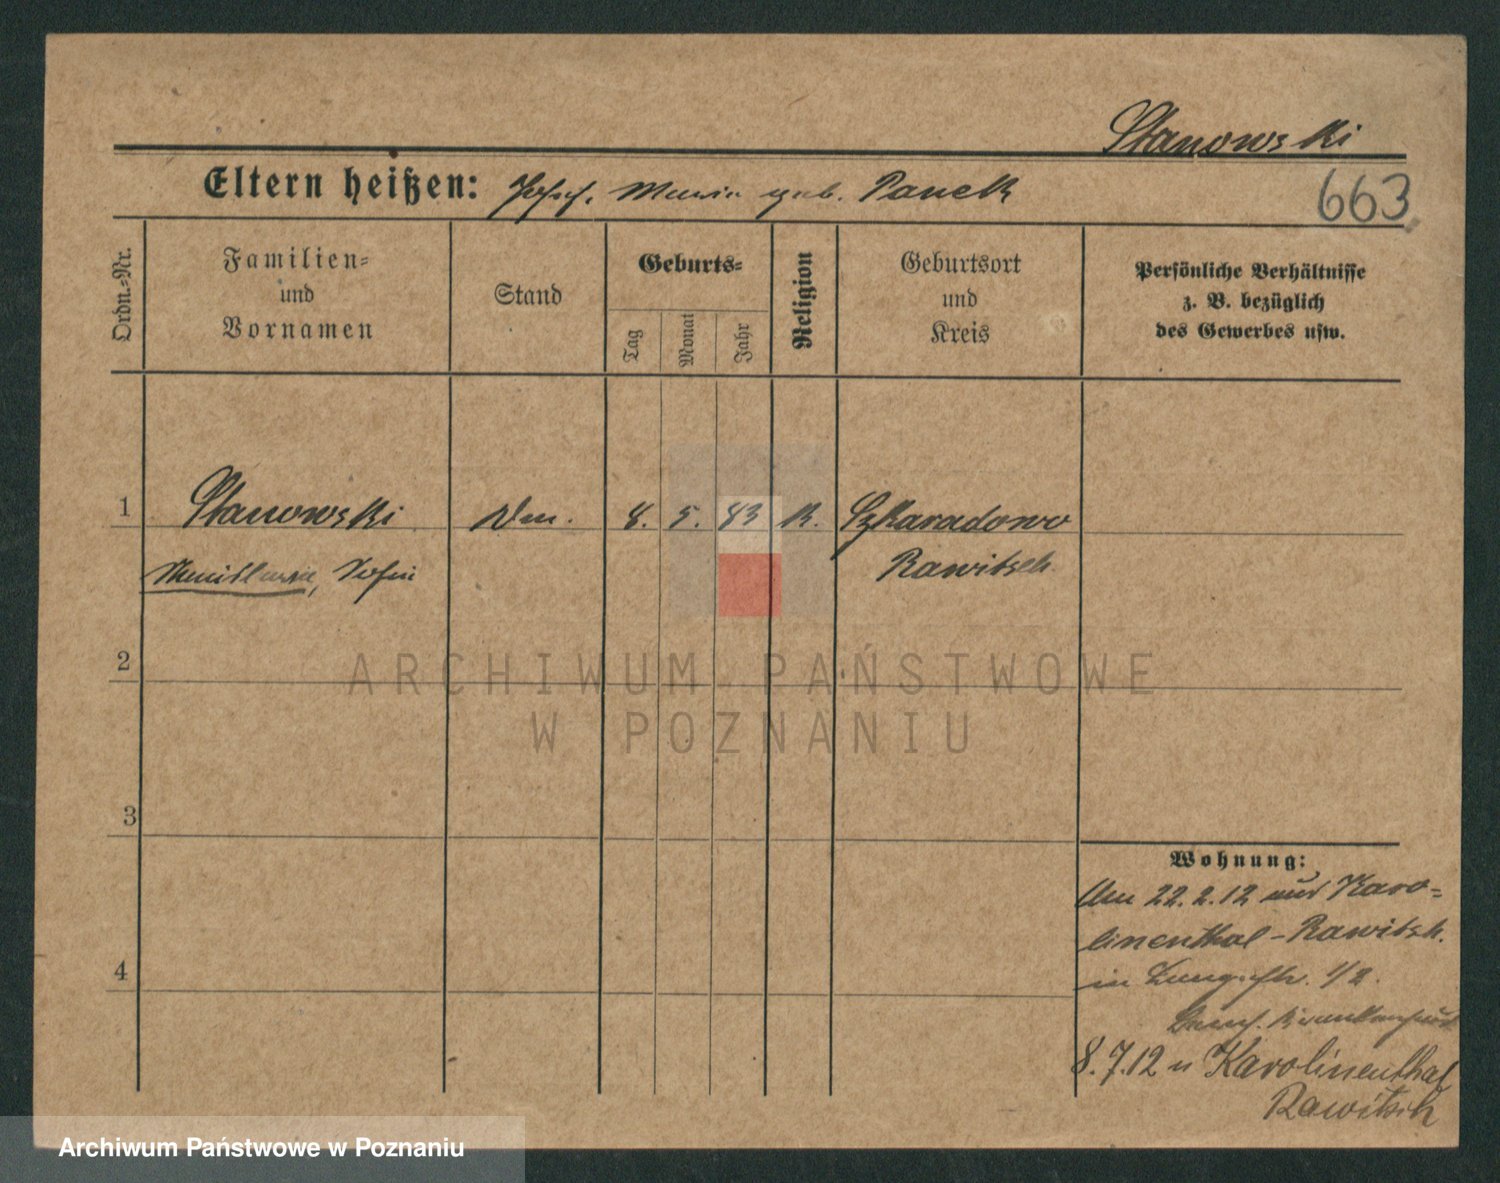 Stanowski
Eltern heißen: Josef. Maria geb. Panek
663
Ordn.-Nr.
Familien-
und
Vornamen
Stand
Geburts-
Tag
Monat
Jahr
Religion
Geburtsort
und
Kreis
Persönliche Verhältnisse
z. B. bezüglich
des Gewerbes usw.
1 Stanowski 8. 5. 83 K. Szkaradowo
Rawitsch.
2
ARCHIWUM PAŃSTWOWE
W POZNANIU
3
Wohnung:
Am 22. 2. 12 aus Karo-
linenthal - Rawitsch.
4
in 1/2.
8. 7. 12 n Karolinenthal
Rawitsch
Archiwum Państwowe w Poznaniu